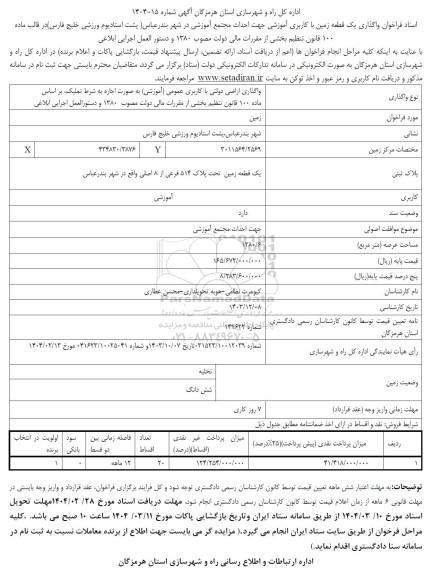 اداره کل راه و شهرسازی استان هرمزگان آگهی شماره ۱۵-۱۴۰۴
اسناد فراخوان واگذاری یک قطعه زمین با کاربری آموزشی جهت احداث مجتمع آموزشی در شهر بندرعباس( پشت استادیوم ورزشی خلیج فارس)در قالب ماده
۱۰۰ قانون تنظیم بخشی از مقررات مالی دولت مصوب ۱۳۸۰ و دستورالعمل اجرایی ابلاغی
با عنایت به اینکه کلیه مراحل انجام فراخوان ها (اعم از دریافت اسناد ارائه تضمین، ارسال پیشنهاد قیمت، بازگشایی پاکات و اعلام برنده) در اداره کل راه و
شهرسازی استان هرمزگان به صورت الکترونیکی در سامانه تدارکات الکترونیکی دولت (ستاد) برگزار می گردد، متقاضیان محترم بایستی جهت ثبت نام در سامانه
مذکور و دریافت نام کاربری و رمز عبور و اخذ توکن به سایت www.setadiran.ir مراجعه فرمایند.
نوع واگذاری
واگذاری اراضی دولتی با کاربری عمومی (آموزشی) به صورت اجاره به شرط تملیک، بر اساس
ماده ۱۰۰ قانون تنظیم بخشی از مقررات مالی دولت مصوب ۱۳۸۰ و دستورالعمل اجرایی ابلاغی
مورد فراخوان
زمین
نشانی
شهر بندرعباس،پشت استادیوم ورزشی خلیج فارس
مختصات مرکز زمین
۳۰۱۱۵۶۴/۲۵۶۹ Y ۴۳۴۸۳۰/۳۸۷۶ X
پلاک ثبتی
یک قطعه زمین تحت پلاک ۵۱۴ فرعی از ۸ اصلی واقع در شهر بندرعباس
کاربری
آموزشی
وضعیت سند
دارد
موضوع موافقت اصولی
جهت احداث مجتمع آموزشی
مساحت عرصه (متر مربع)
۱۳۸۰/۶
قیمت پایه (ریال)
۱۶۵/۶۷۲/۰۰۰/۰۰۰
پنج درصد قیمت پایه(ریال)
۸/۲۸۳/۶۰۰/۰۰۰
نام کارشناسان
کیومرث نظامی-حوبه تحویلداری-محسن عطاری
تاریخ کارشناسی
۱۴۰۳/۱۲/۰۸
نامه تعیین قیمت توسط کانون کارشناسان رسمی دادگستری
استان هرمزگان
شماره ۱۴۹۶۲۲
رأی هیأت نمایندگی اداره کل راه و شهرسازی
وضعیت زمین
تخلیه
شش دانگ
مهلت زمانی واریز وجه (عقد قرارداد)
۷ روز کاری
شرایط فروش: نقد و اقساط در ازای اخذ ضمانتنامه مطابق جدول ذیل
ردیف
میزان پرداخت نقدی (پیش پرداخت)(۲۵درصد)
میزان پرداخت غیر نقدی (اقساط)(درصد)
تعداد اقساط
فاصله زمانی بین دو قسط
سود بانکی
اولویت در انتخاب برنده
۱
۴۱/۴۱۸/۰۰۰/۰۰۰
۱۲۴/۲۵۴/۰۰۰/۰۰۰
۲۰
۱۲ ماهه
۰
۱
توضیحات: به مهلت اعتبار شش ماهه تعیین قیمت توسط کانون کارشناسان رسمی دادگستری توجه شود و کل فرایند برگزاری فراخوان، عقد قرارداد و واریز وجه بایستی در
مهلت قانونی ۶ ماهه از زمان اعلام قیمت توسط کانون کارشناسان رسمی دادگستری انجام شود، مهلت دریافت اسناد مورخ ۲۸/ ۱۴۰۴/۰۲مهلت تحویل
اسناد مورخ ۱۰/ ۱۴۰۴/۰۳ از طریق سامانه ستاد ایران وتاریخ بازگشایی پاکات مورخ ۱۴۰۴ /۰۳/۱۱ ساعت ۱۰ صبح می باشد .کلیه
مراحل فراخوان از طریق سایت ستاد ایران انجام می گیرد.( مزایده گر می بایست جهت اطلاع از برنده معاملات نسبت به ثبت نام در
سامانه سنا دادگستری اقدام نماید.)
اداره ارتباطات و اطلاع رسانی راه و شهرسازی استان هرمزگان